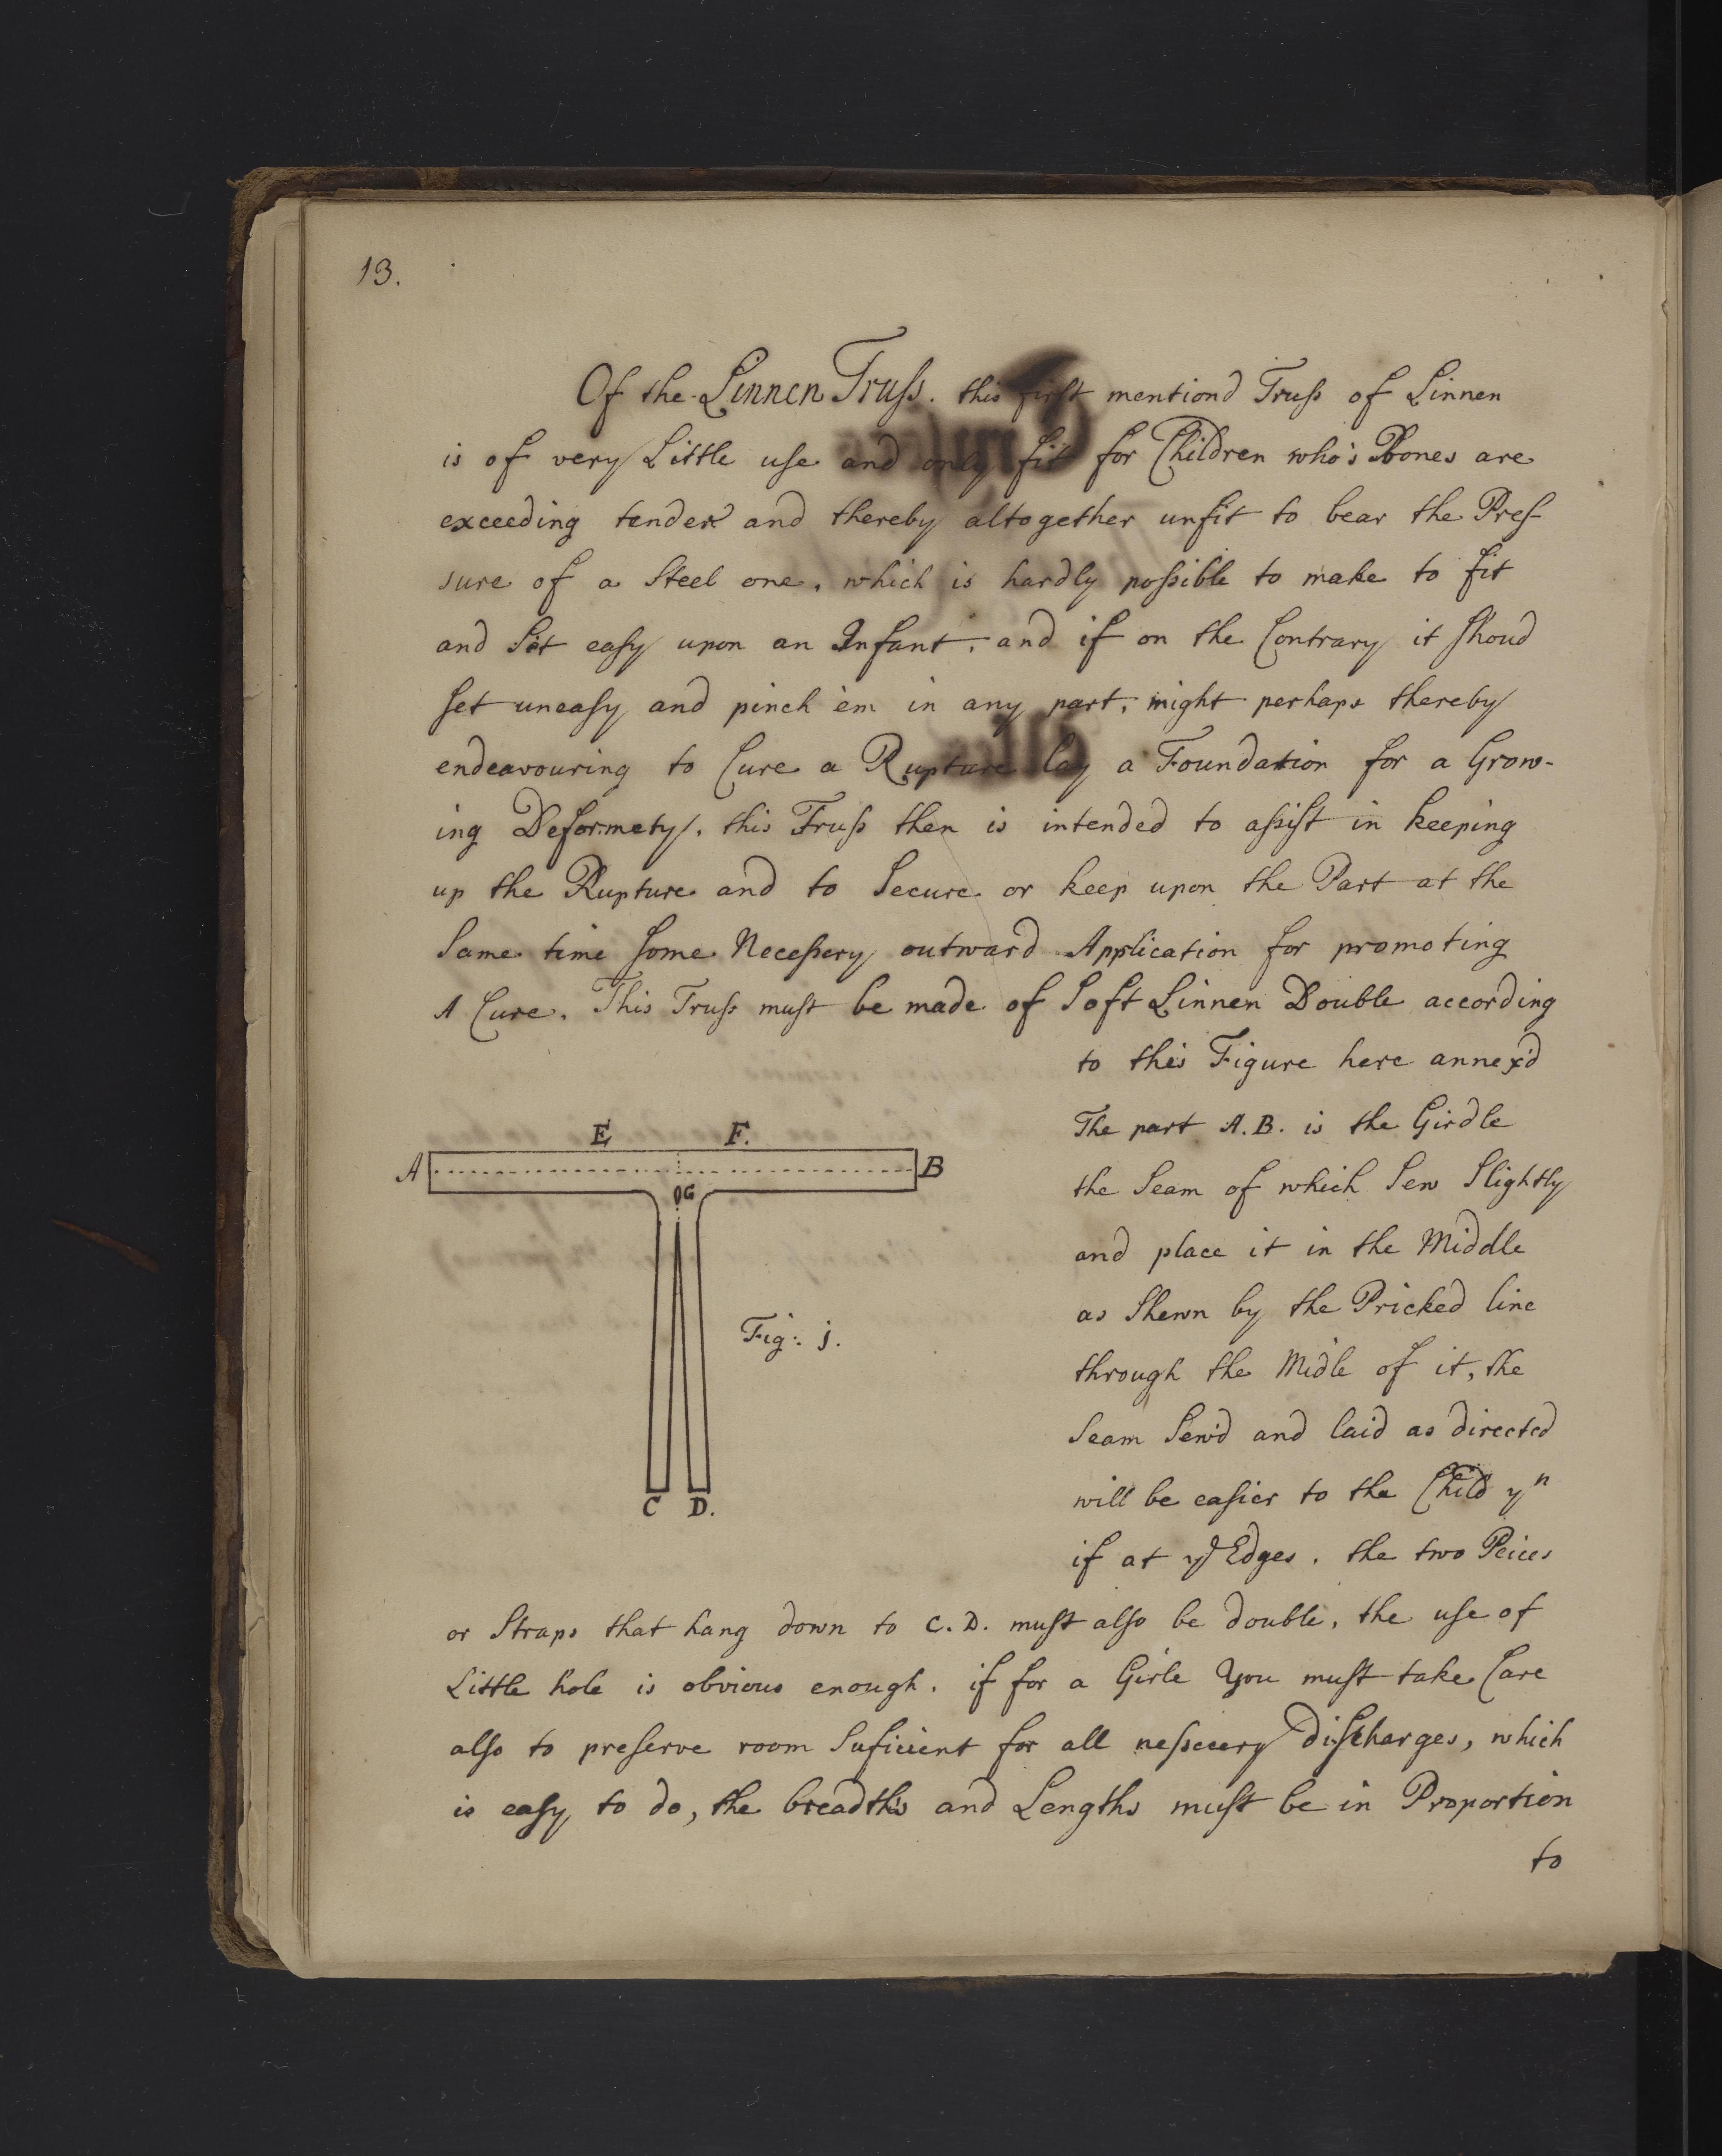 13.
Of the Linnen Truſs. this firſt mentiond Truſs of Linnen
is of very Little uſe and only fit for Children who's Bones are
exceeding tender and thereby altogether unfit to bear the Preſ-
sure of a Steel one, which is hardly poſsible to make to fit
and Sit eaſy upon an Infant, and if on the Contrary it ſhoud
ſet uneaſy and pinch 'em in any part, might perhaps thereby
endeavouring to Cure a Rupture lay a Foundation for a Grow-
ing Deformety. this Truſs then is intended to aſsiſt in keeping
up the Rupture and to Secure or keep upon the Part at the
Same time ſome Neceſsery outward Application for promoting
A Cure. This Truſs muſt be made of Soft Linnen Double according
to this Figure here annex'd
The part A.B. is the Girdle
the Seam of which Sew Slightly
and place it in the Middle
as Shewn by the Pricked line
through the Midle of it, the
Seam Sew'd and laid as directed
will be eaſier to the Child yn
if at ye Edges. the two Peices
E F.
A B
G
Fig: 1.
C D.
or Straps that hang down to C.D. muſt alſo be double, the uſe of
Little hole is obvious enough. if for a Girle You muſt take Care
alſo to preſerve room Suficient for all neſsecery diſcharges, which
is eaſy to do, the breadth's and Lengths muſt be in Proportion
to